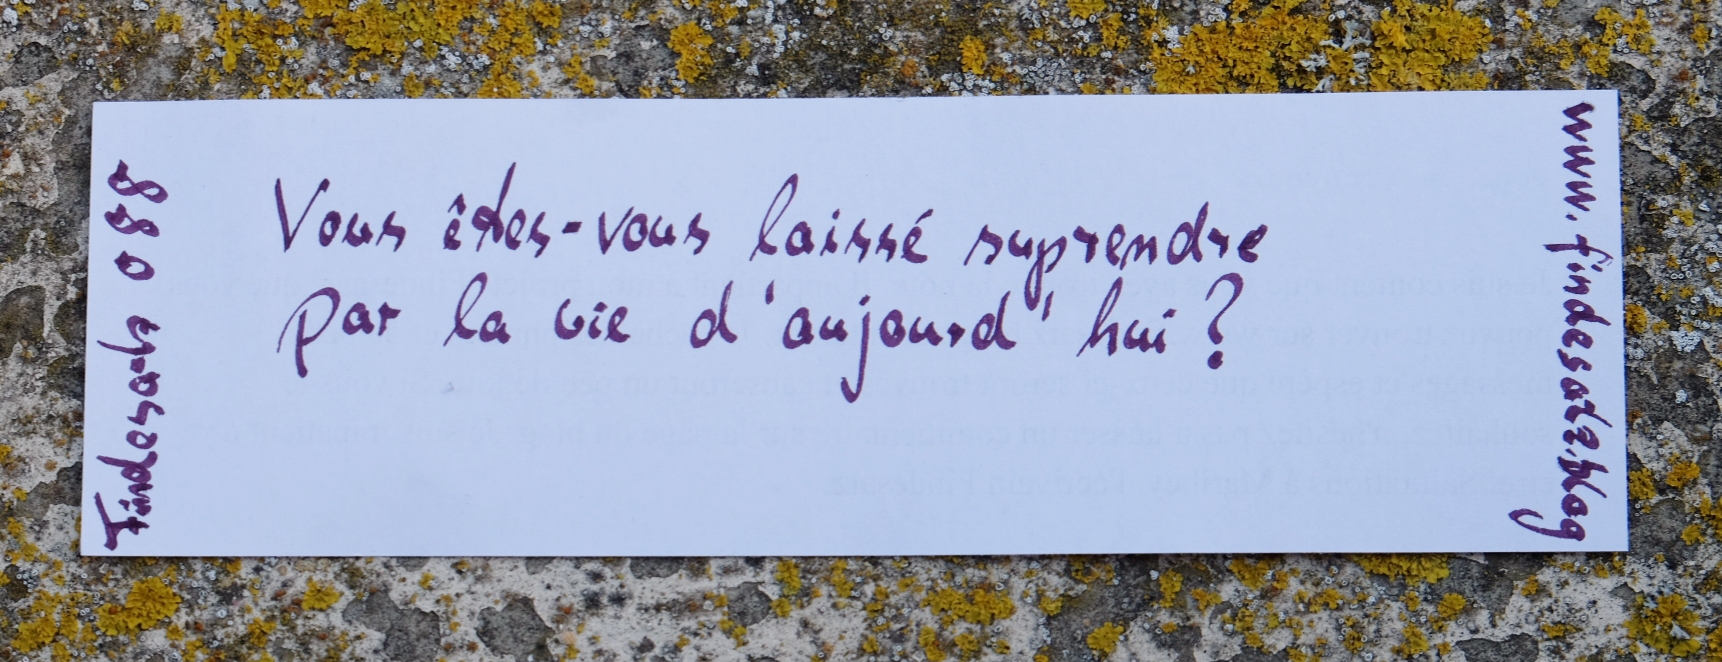 Findesatz 088
Vous êtes-vous laissé suprendre
par la vie d'aujourd'hui?
www.findesatz.blog